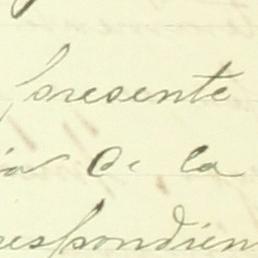 presente
ia de la
respondien